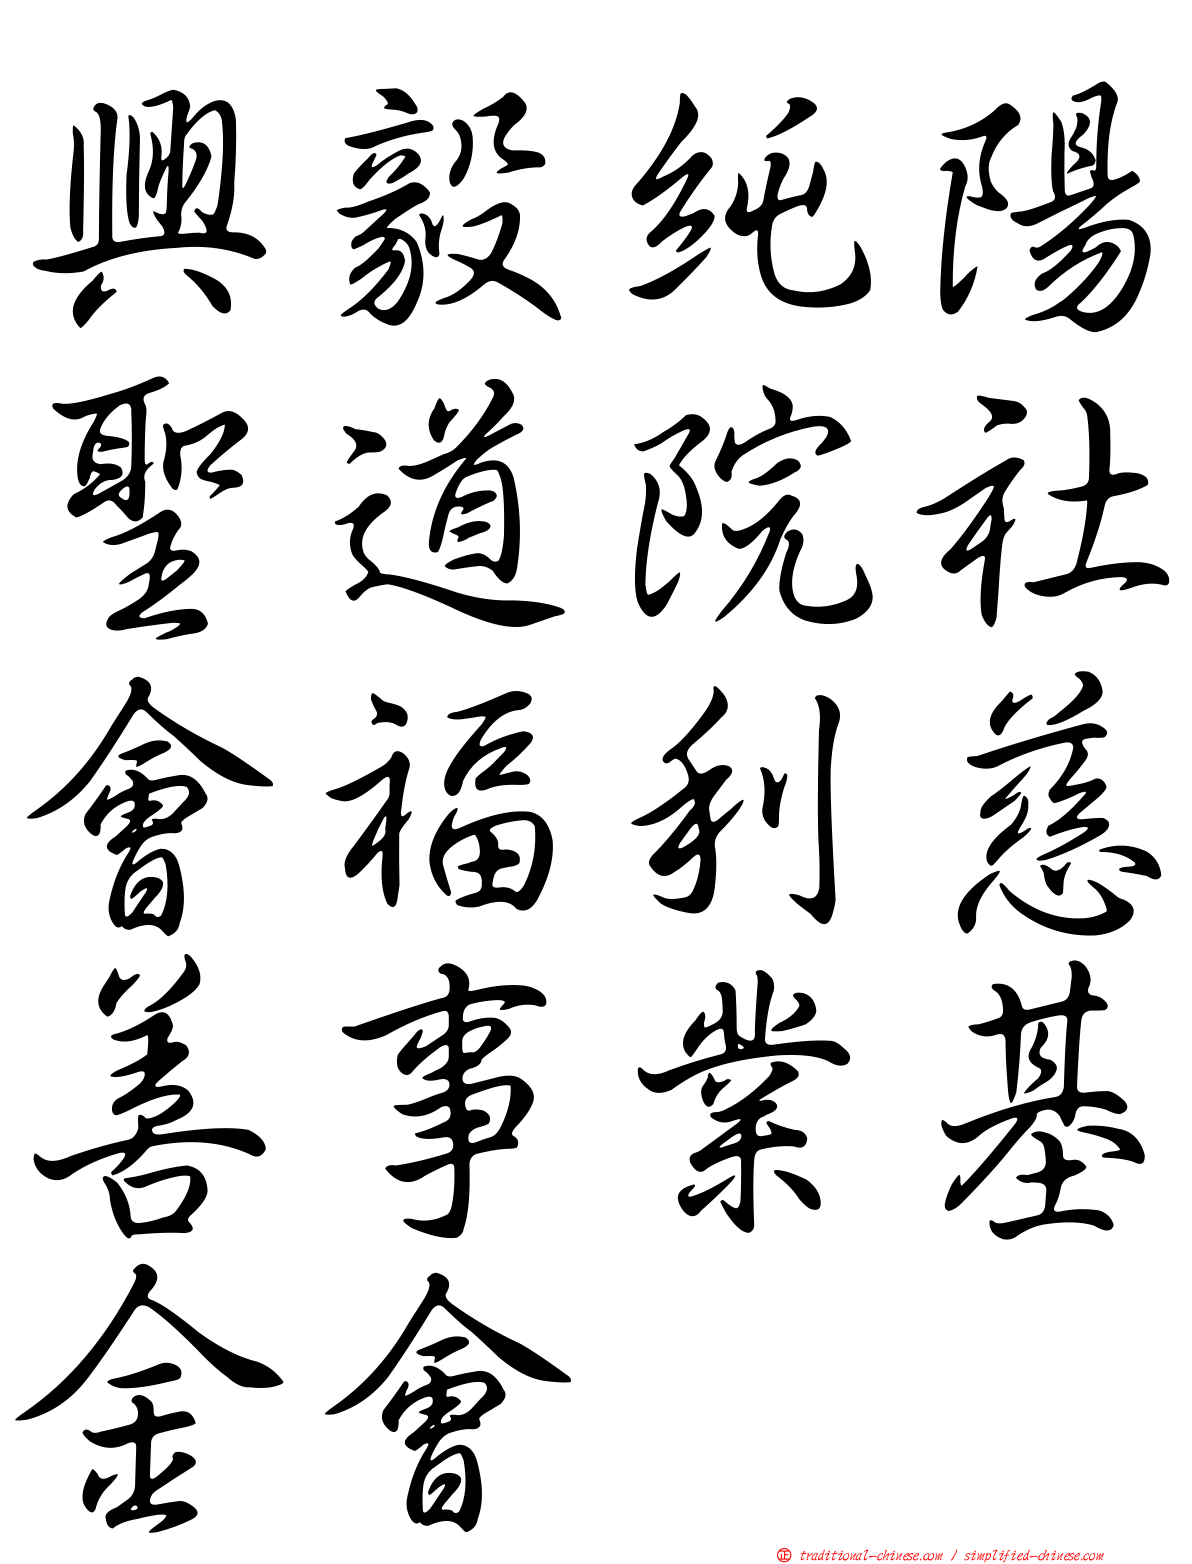 興毅純陽
聖道院社
會福利慈
善事業基
金會
正 traditional-chinese.com / simplified-chinese.com